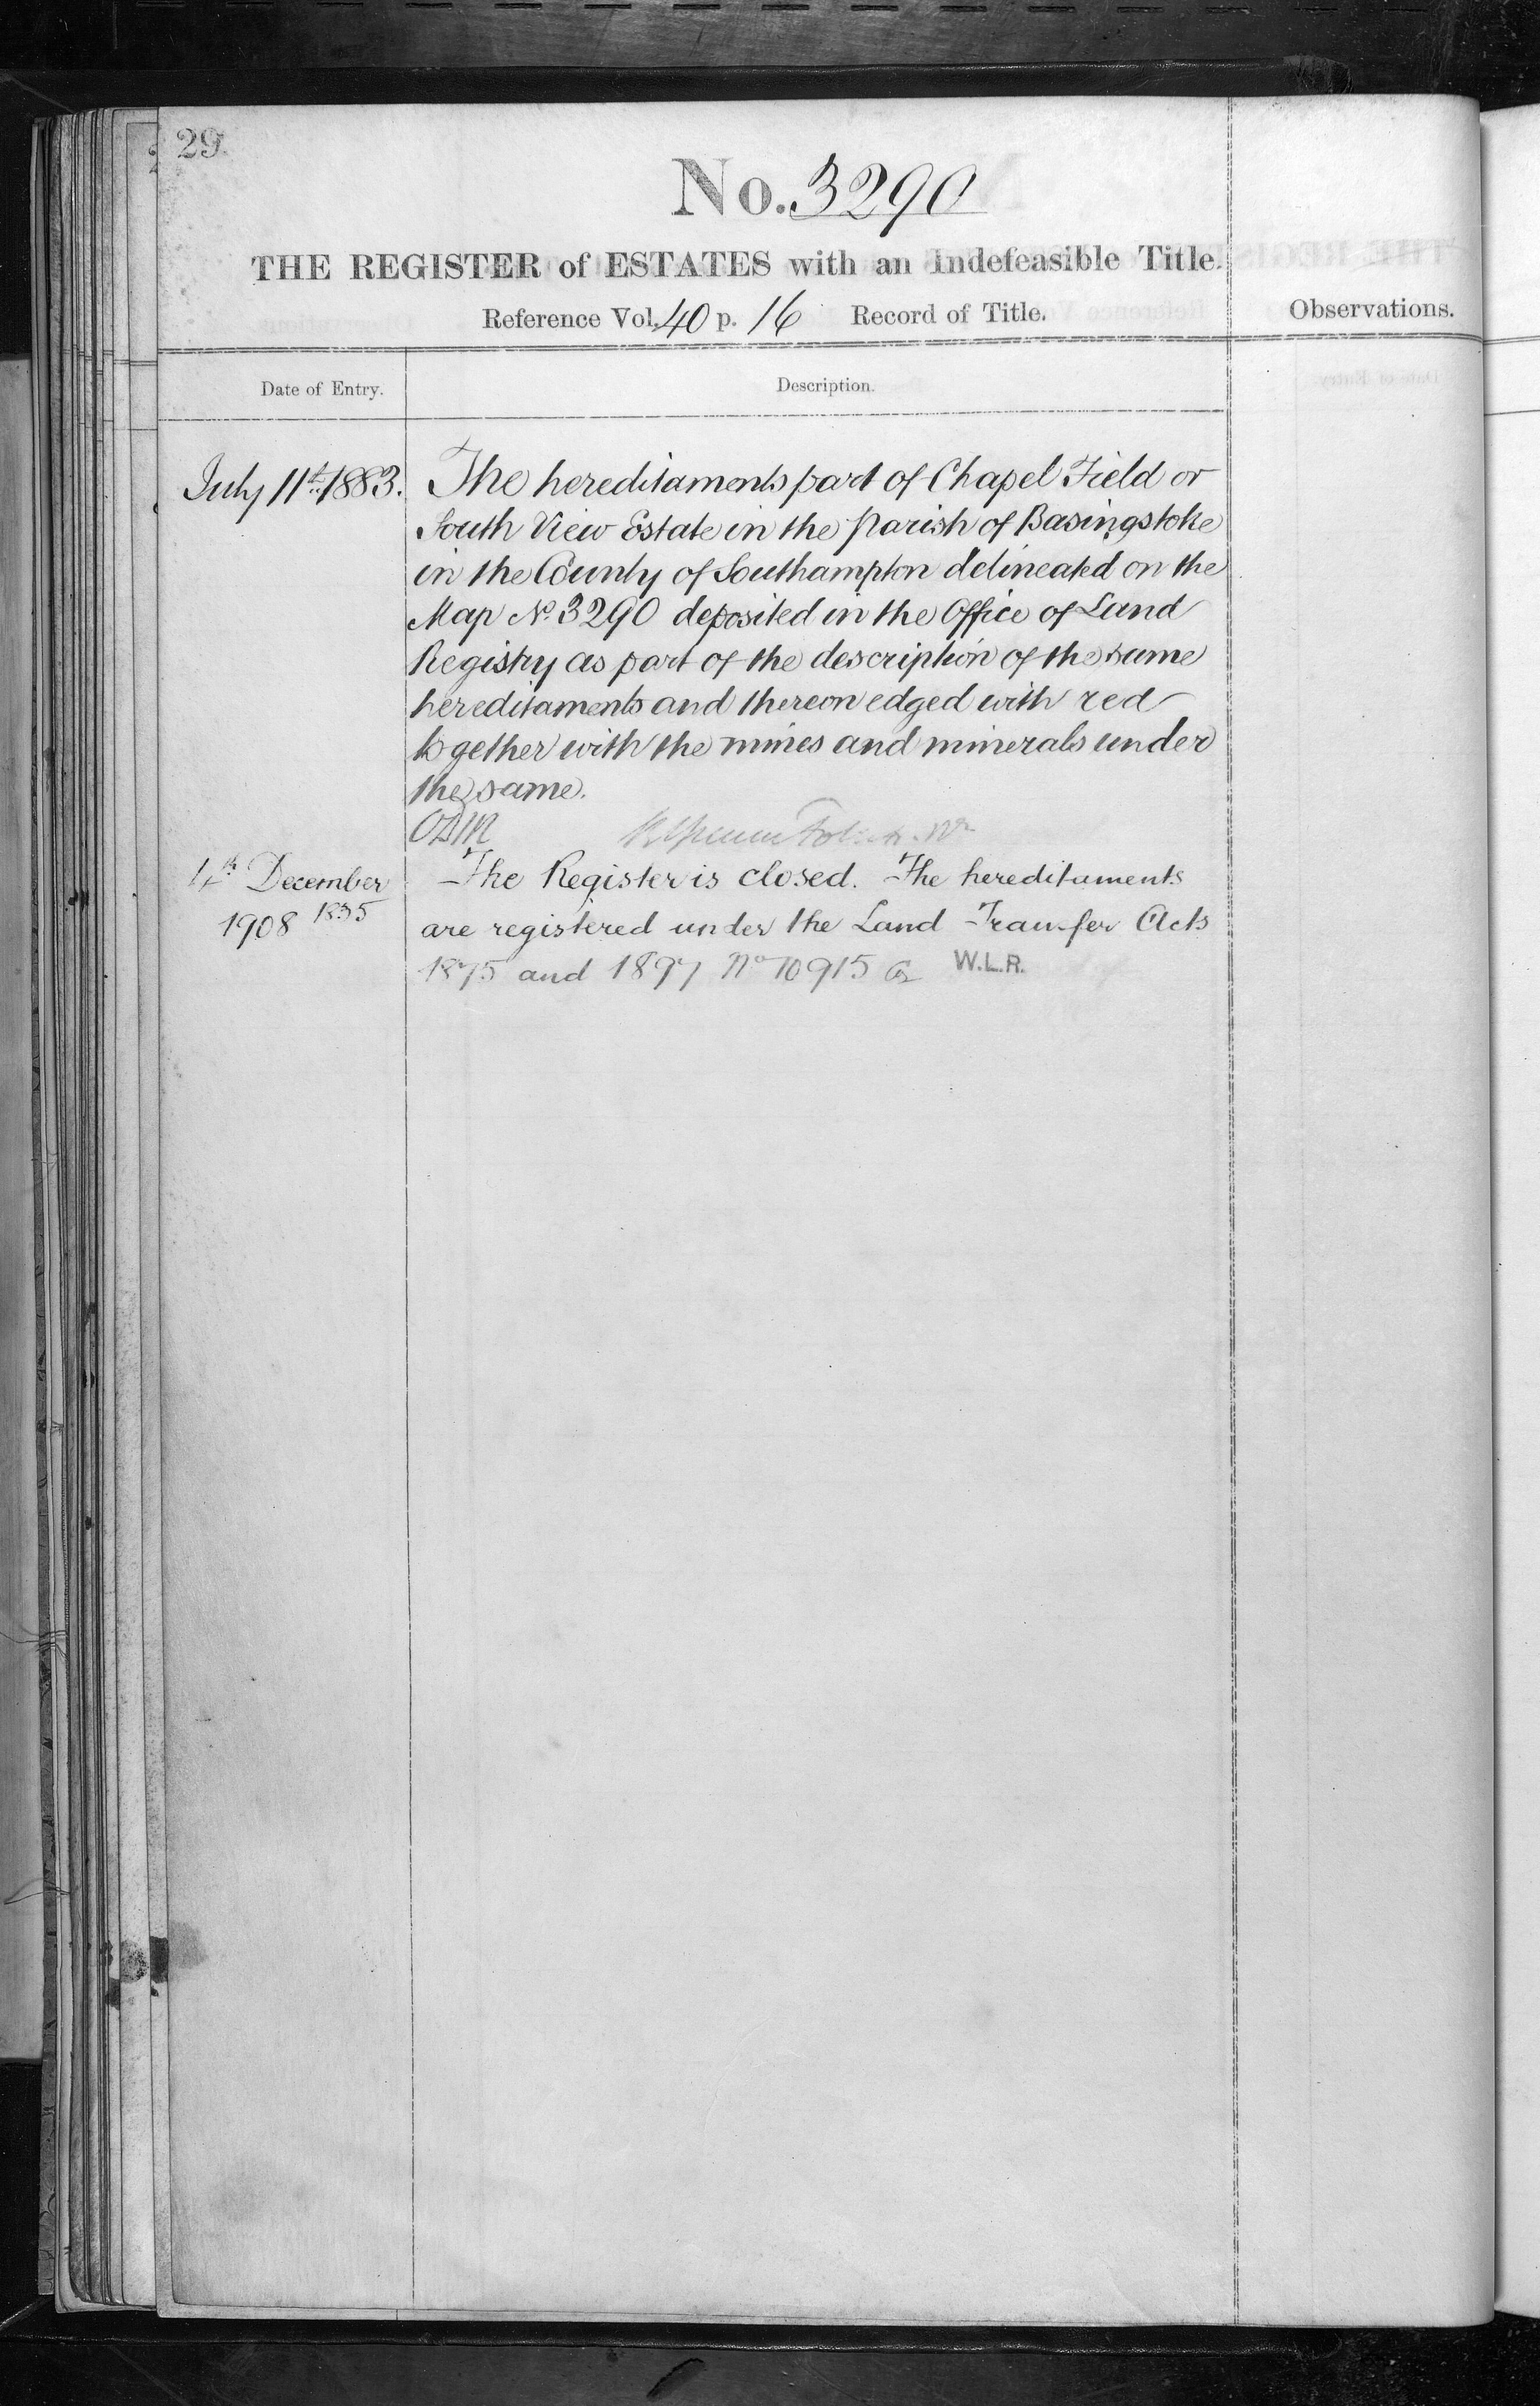 29.
No. 3290
THE REGISTER of ESTATES with an Indefeasible Title.
Reference Vol. 40 p. 16 Record of Title.
Observations.
Date of Entry.
Description.
July 11th 1883.
The hereditaments part of Chapel Field or
South View Estate in the Parish of Basingstoke
in the County of Southampton delineated on the
Map No. 3290 deposited in the Office of Land
Registry as part of the description of the same
hereditaments and thereon edged with red
together with the mines and minerals under
the same.
4th December
1908 1835
The Register is closed. The hereditaments
are registered under the Land Transfer Acts
1875 and 1897 No 10915 W.L.R.